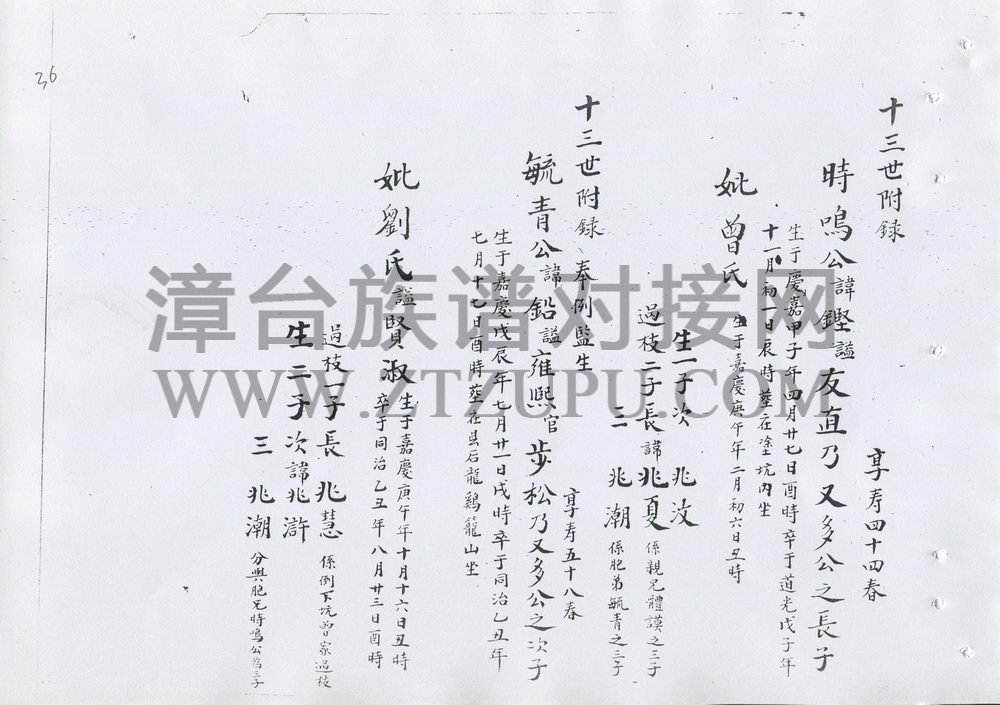 36
十三世附録
享寿四十四春
時鳴公諱鏗謚友直乃又多公之長子
生于慶嘉甲子年四月廿七日酉時卒于道光戊子年
十一月初一日辰時塟在塗坑内坐
妣曾氏生于嘉慶庚午年二月初六日丑時
生一子次兆汶
過枝二子長諱兆夏係親兄體謨之三子
三兆潮係胞弟毓青之三子
十三世附録奉例監生
享寿五十八春
毓青公諱鉛謚雍熙官步松乃又多公之次子
生于嘉慶戊辰年七月廿一日戌時卒于同治乙丑年
七月十七日酉時塟在县后龍鷄籠山坐
妣劉氏謚賢淑生于嘉慶庚午年十月十六日丑時
卒于同治乙丑年八月廿三日酉時
過枝一子長兆慧係倒下坑曾家過枝
生二子次諱兆滸
三兆潮分與胞兄時鳴公為三子
漳台族谱对接网
WWW.ZTZUPU.COM